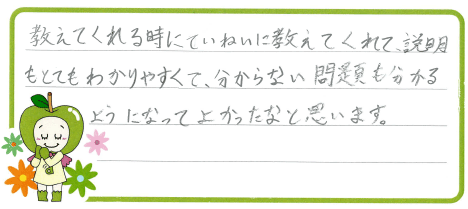 教えてくれる時にていねいに教えてくれて、説明
もとてもわかりやすくて、分からない問題も分かる
ようになってよかったなと思います。